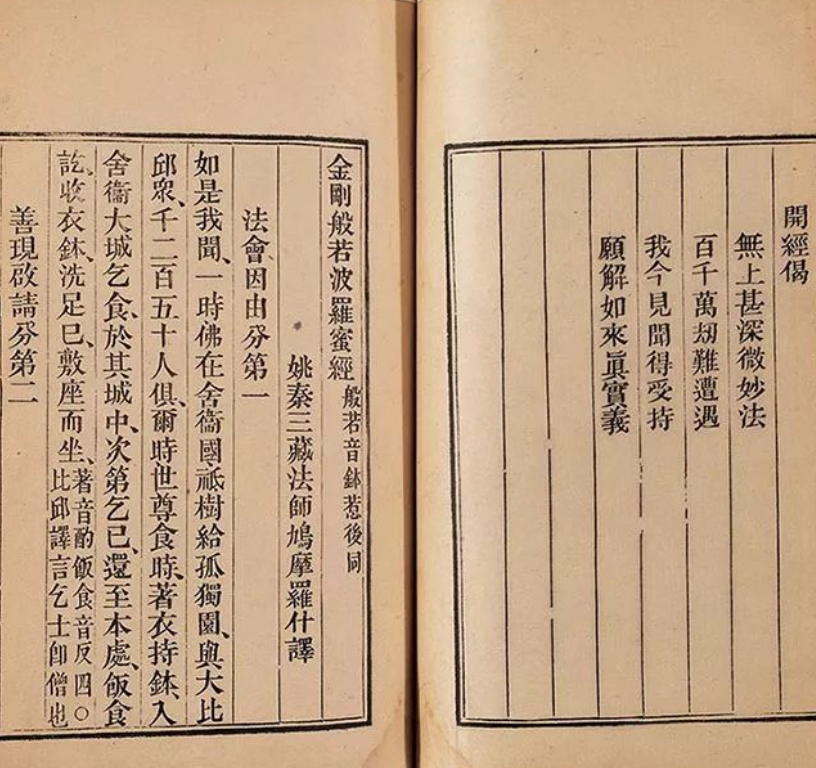 開經偈
無上甚深微妙法
百千萬劫難遭遇
我今見聞得受持
願解如來眞實義
金剛般若波羅蜜經 般若音鉢惹後同
姚秦三藏法師鳩摩羅什譯
法會因由分第一
如是我聞、一時佛在舍衞國祇樹給孤獨園、與大比
邱眾、千二百五十人俱、爾時世尊食時、著衣持鉢、入
舍衞大城乞食、於其城中、次第乞已、還至本處、飯食
訖、收衣鉢、洗足已、敷座而坐、著音酌飯食音反四〇比邱譯言乞士卽僧也
善現啟請分第二